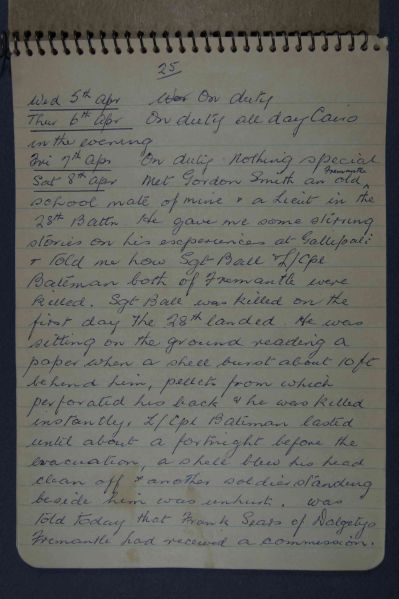 25
Wed 5th Apr On duty
Thur 6th Apr On duty all day Cairo
in the evening
Fri 7th Apr On duty. Nothing special
Sat 8th Apr Met Gordon Smith an old Fremantle
school mate of mine & a Lieut in the
28th Battn He gave me some stirring
stories on his experiences at Gallipoli
& told me how Sgt Ball & L/Cpl
Bateman both of Fremantle were
killed. Sgt Ball was killed on the
first day the 28th landed. He was
sitting on the ground reading a
paper when a shell burst about 10ft
behind him, pellets from which
perforated his back & he was killed
instantly. L/Cpl Bateman lasted
until about a fortnight before the
evacuation, a shell blew his head
clean off & another soldier standing
beside him was unhurt. was
told today that Frank Sears of Dalgetys
Fremantle had received a commission.